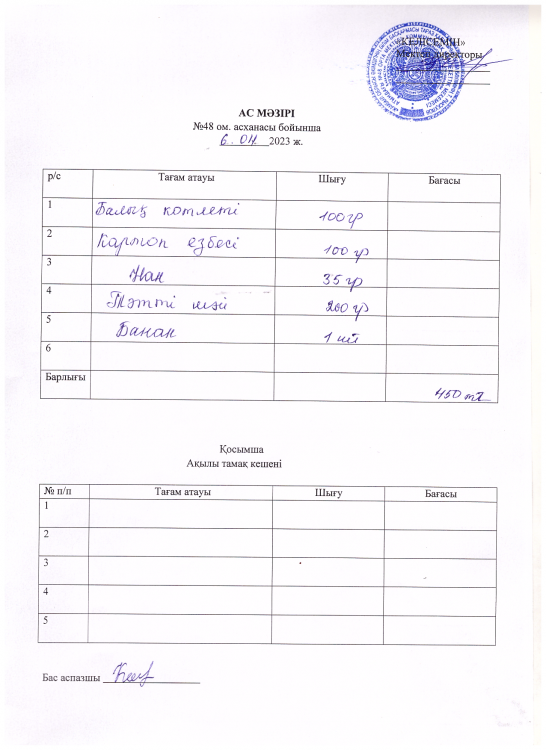 «КЕЛІСЕМІН»
Мектеп директоры
АС МӘЗІРІ
№48 ом. асханасы бойынша
6.04 2023 ж.
р/с Тағам атауы Шығу Бағасы
1 Балық котлеті 100гр
2 Картоп езбесі 100 гр
3 Нан 35 гр
4 Тәтті шәй 200 гр
5 Банан 1 шт
6
Барлығы 450 тг
Қосымша
Ақылы тамақ кешені
№ п/п Тағам атауы Шығу Бағасы
1
2
3
4
5
Бас аспазшы